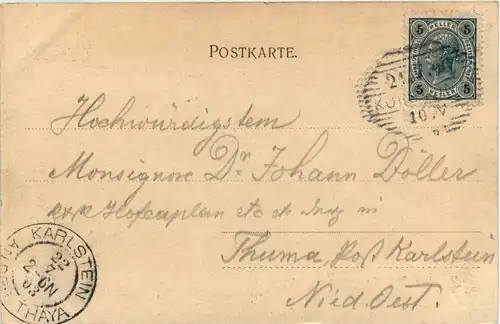 POSTKARTE.
5 HELLER 5
5 HELLER 5
10.V
Hochwürdigstem
Monsignore Dr. Johann Döller
k.u.k. Hofcaplan etc etc in
Thuma, Post Karlstein
Nied. Oest.
KARLSTEIN
AN DER THAYA